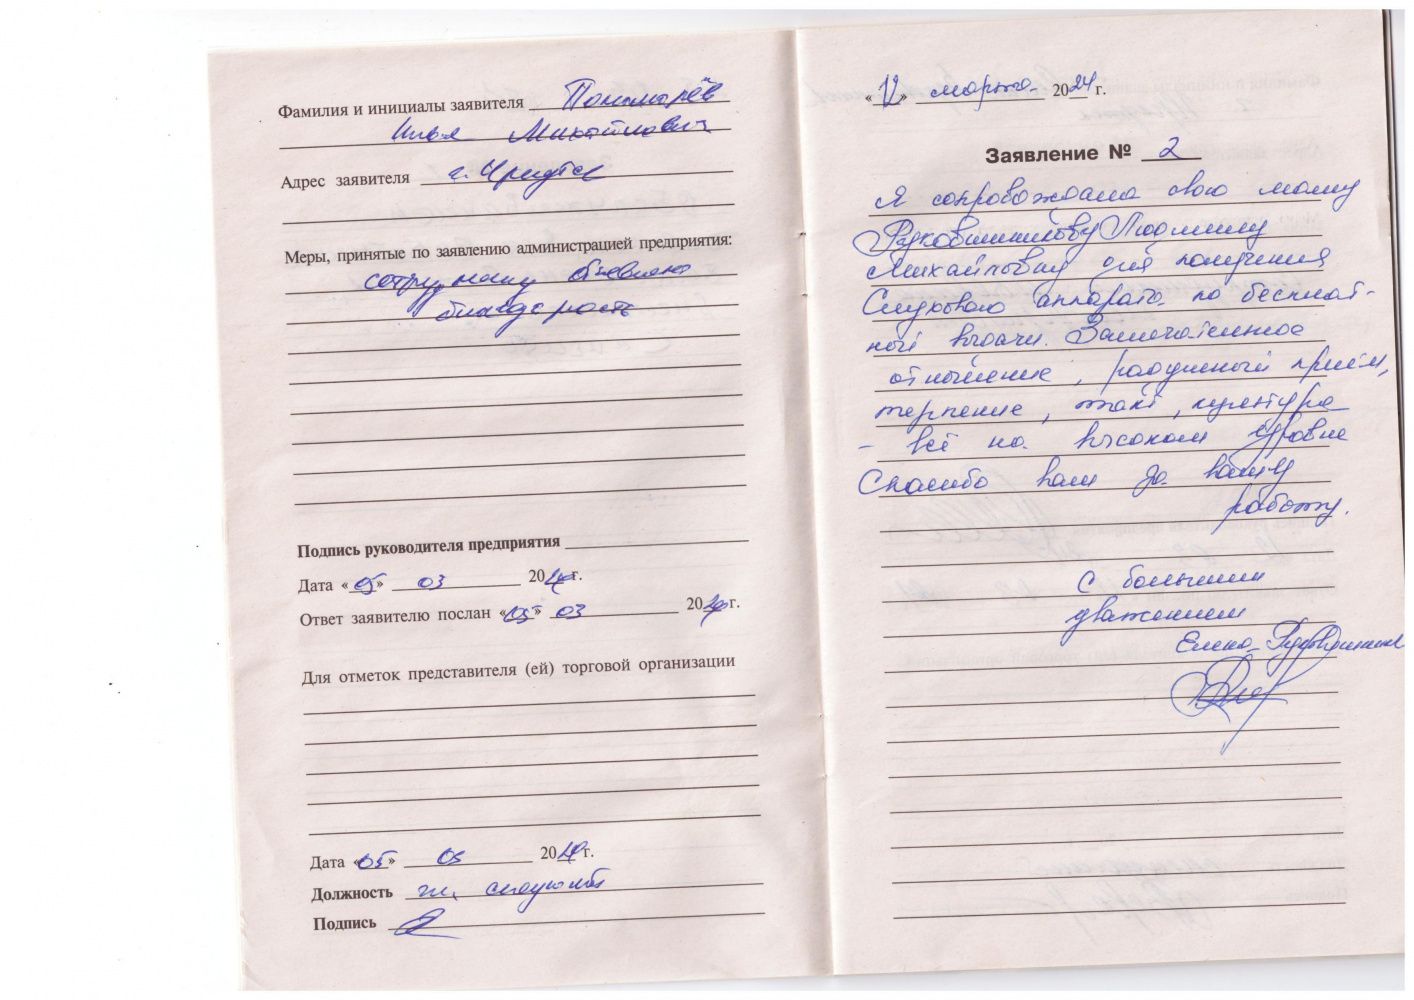 Фамилия и инициалы заявителя Пономарёв
Илья Михайлович
Адрес заявителя г.
Меры, принятые по заявлению администрацией предприятия:
сотруднику объявлена
благодарность
Подпись руководителя предприятия
Дата «05» 03 20 г.
Ответ заявителю послан «05» 03 20 г.
Для отметок представителя (ей) торговой организации
Дата «05» 20 г.
Должность
Подпись
« » марта 2024 г.
Заявление № 2
Я сопровождала свою маму
Рукавишникову Людмилу
Михайловну для получения
Слухового аппарата по бесплат-
ной выдачи. Замечательное
отношение, радушный приём,
терпение, такт, культура
- всё на высоком уровне
Спасибо вам за вашу
работу.
С большим
уважением
Елена Рукавишникова